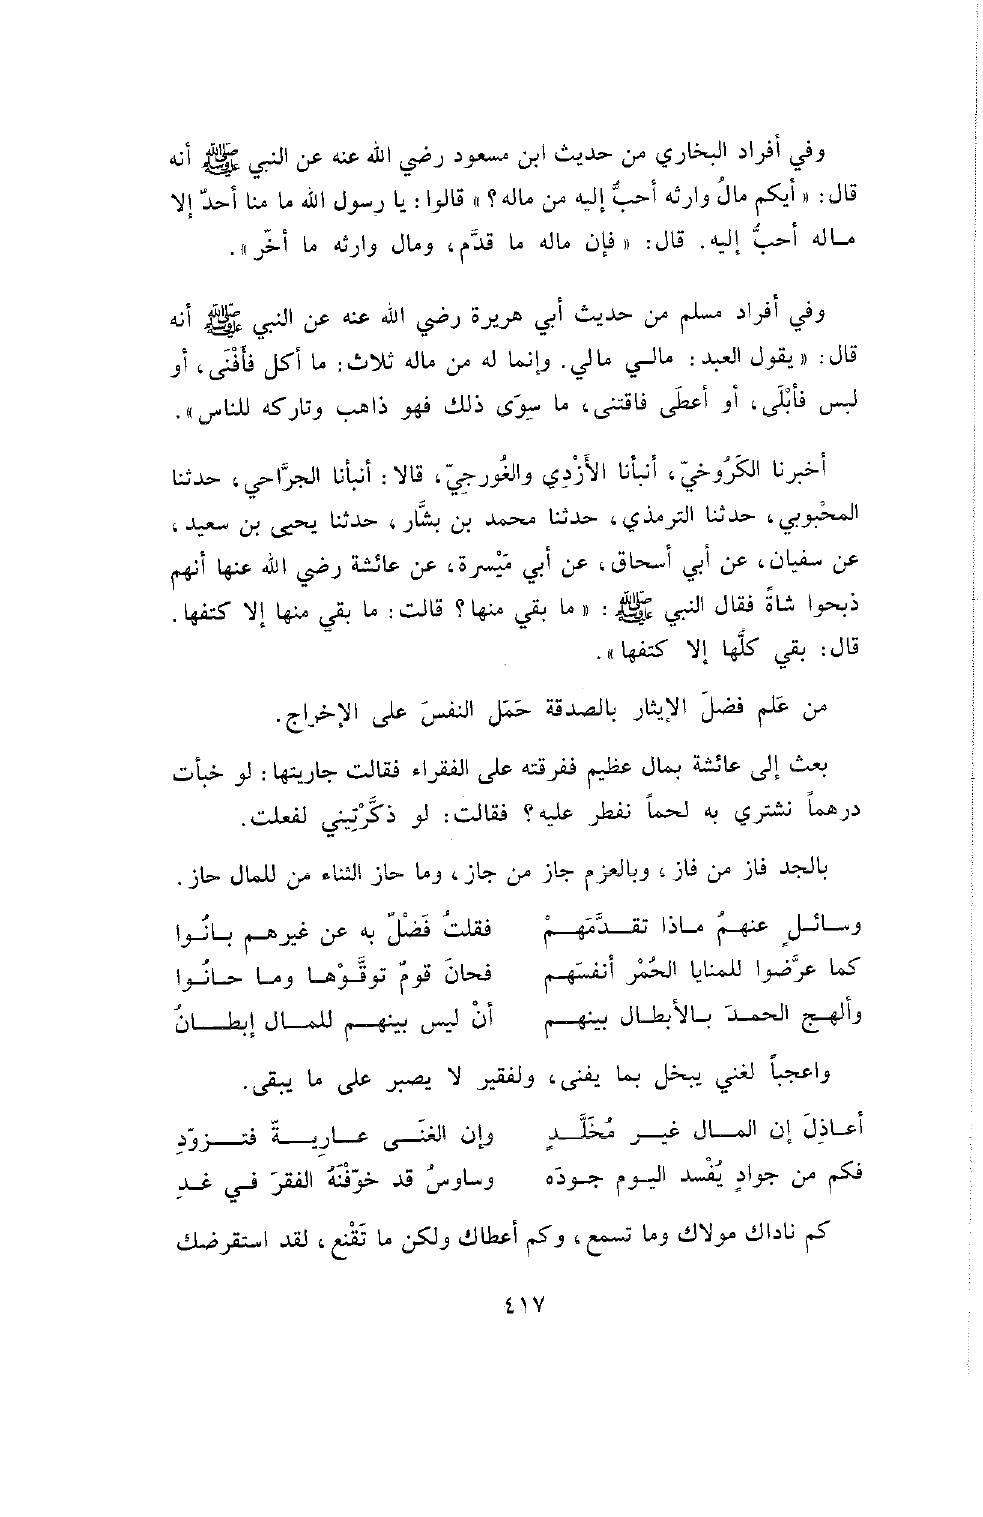 وفي أفراد البخاري من حديث ابن مسعود رضي الله عنه عن النبي ﷺ أنه
قال: «أيكم مالُ وارثه أحبُّ إليه من ماله؟» قالوا: يا رسول الله ما منا أحدٌ إلا
ماله أحبُّ إليه. قال: «فإن ماله ما قدَّم، ومال وارثه ما أخّر».
وفي أفراد مسلم من حديث أبي هريرة رضي الله عنه عن النبي ﷺ أنه
قال: «يقول العبد: مالي مالي. وإنما له من ماله ثلاث: ما أكل فأَفْنَى، أو
لبس فأبْلَى، أو أعطَى فاقتنى، ما سوَى ذلك فهو ذاهب وتاركه للناس».
أخبرنا الكَرُوخيّ، أنبأنا الأَزْدِي والغُورجيّ، قالا: أنبأنا الجرَّاحي، حدثنا
المحْبوبي، حدثنا الترمذي، حدثنا محمد بن بشَّار، حدثنا يحيى بن سعيد،
عن سفيان، عن أبي أسحاق، عن أبي مَيْسرة، عن عائشة رضي الله عنها أنهم
ذبحوا شاةً فقال النبي ﷺ: «ما بقي منها؟ قالت: ما بقي منها إلا كتفها.
قال: بقي كلُّها إلا كتفها».
من عَلم فضلَ الإيثار بالصدقة حَمَل النفسَ على الإخراج.
بعث إلى عائشة بمال عظيم ففرقته على الفقراء فقالت جاريتها: لو خبأت
درهماً نشتري به لحماً نفطر عليه؟ فقالت: لو ذكَّرْتِيني لفعلت.
بالجد فاز من فاز، وبالعزم جاز من جاز، وما حاز الثناء من للمال حاز.
وسائلٍ عنهمُ ماذا تقدَّمَهمْ فقلتُ فَضْلٌ به عن غيرهم بانُوا
كما عرَّضوا للمنايا الحُمْر أنفسَهم فحانَ قومٌ توقَّوْها وما حانُوا
وألهج الحمدَ بالأبطال بينهم أنْ ليس بينهم للمال إبطانُ
واعجباً لغني يبخل بما يفنى، ولفقير لا يصبر على ما يبقى.
أعاذِلَ إن المال غير مُخَلَّدٍ وإن الغنَى عاريةٌ فتزوّدِ
فكم من جوادٍ يُفْسد اليوم جودَه وساوسُ قد خوّفْنَهُ الفقرَ في غدِ
كم ناداك مولاك وما تسمع، وكم أعطاك ولكن ما تَقْنع، لقد استقرضك
٤١٧